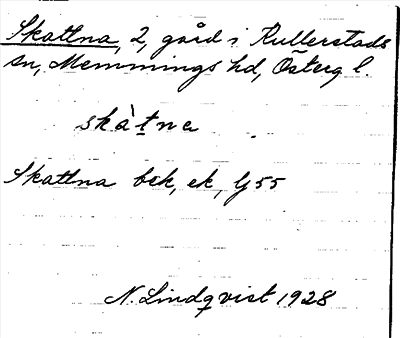 Skattna, 2, gård i Kullerstads
sn, Memmings hd, Österg l.
skàtna
Skattna bek, ek, Gj 55
N. Lindqvist 1928